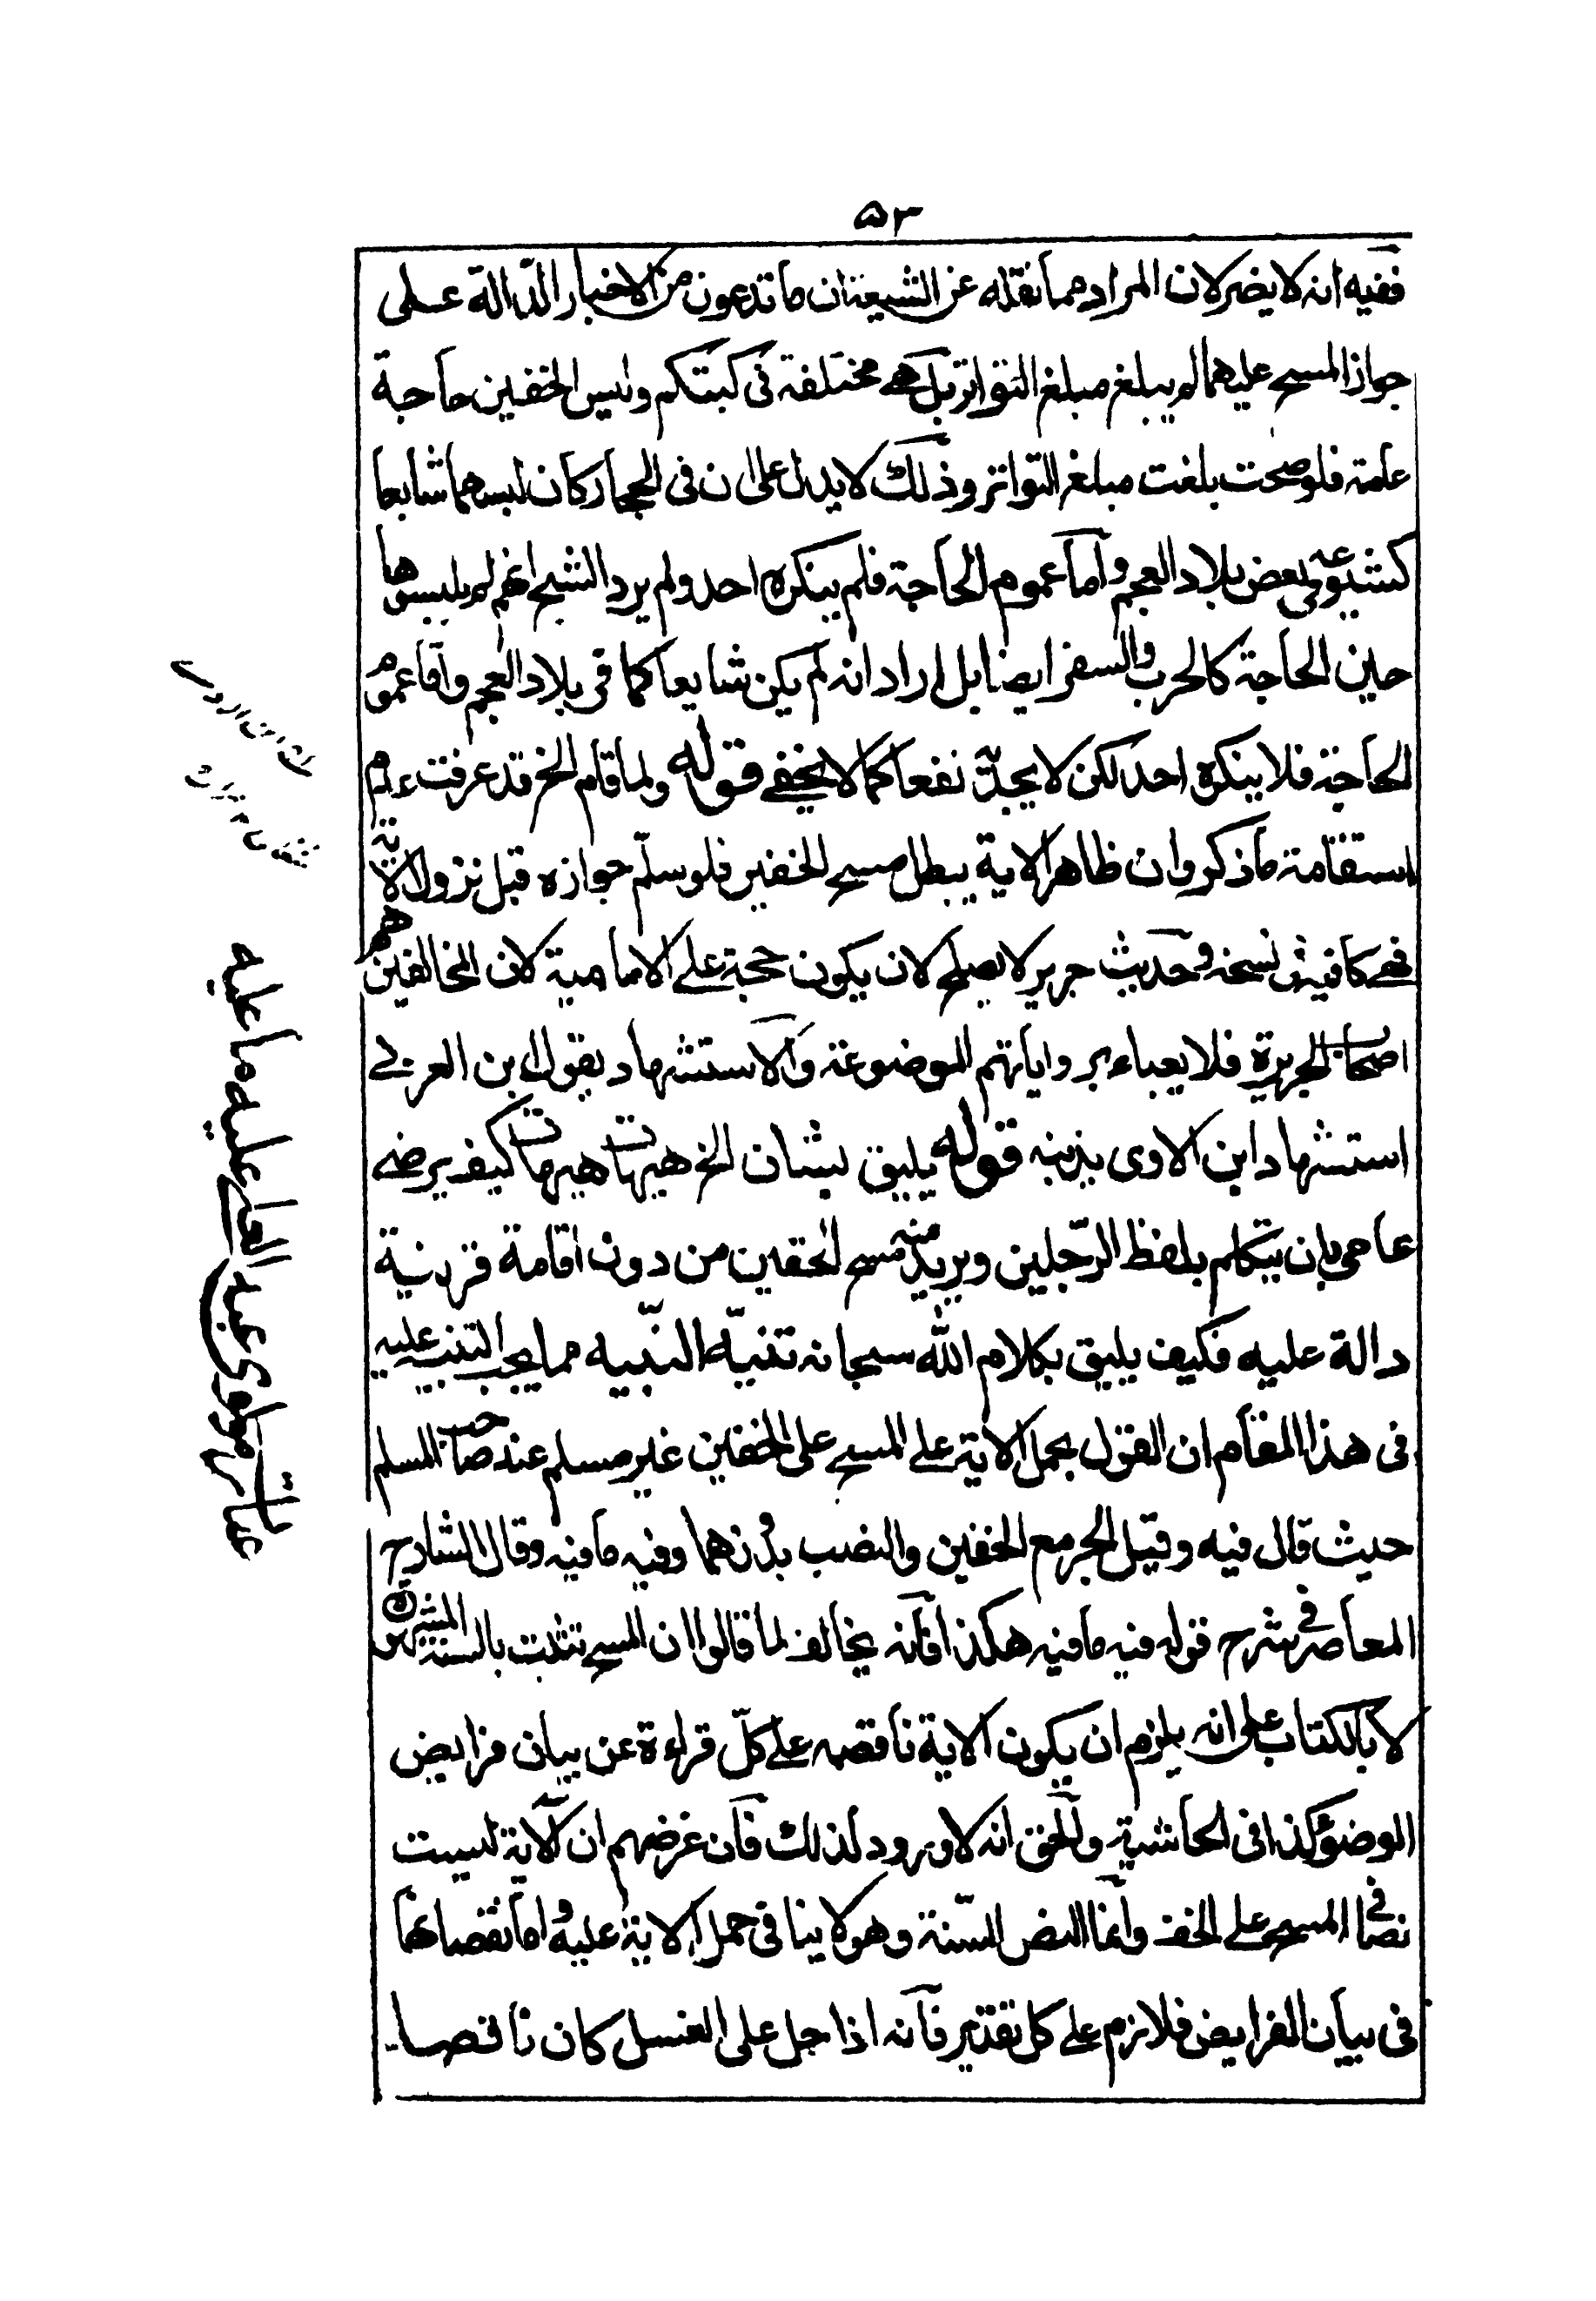 ٥٣
ففيه انه لا يضر لان المراد مما نقله عن الشيعة ان ما تدعون من الاخبار الدّالة على
جواز المسح عليهما لم يبلغ مبلغ التواتر بل هے مختلفة فى كتبكم وليس الخفين حاجة
عامة فلو صحت بلغت مبلغ التواتر وذلك لا يدل على ان فى الحجاز كان لبسهما شايعا
كشيوعه فى بعض بلاد العجم واما عموم الحاجة فلم ينكره احد ولم يرد الشيخ انهم لم يلبسوها
حين الحاجة كالحرب والسفر ايضا بل اراد انه لم يكن شايعا كما فى بلاد العجم واما عموم
الحاجة فلا ينكره احد لكن لا يجدى نفعا كما لا يخفے قوله ولما قام الخ قد عرفت عدم
استقامة ما ذكر وان ظاهر الاية يبطل مسح الخفين فلو سلّم جوازه قبل نزول الاية
فهے كافية فى نسخه وحديث جرير لا يصلح لان يكون حجة علے الامامية لان المخالفين هم
اصحاب الجريرة فلا يعباء بروايأتهم الموضوعة والاستشهاد بقول ابن العربے
استشهاد ابن الاوى بذنبه قوله يليق بشان الخ هيهات هيهات كيف يرضے
عامى بان يتكلم بلفظ الرّجلين ويريد منه مسح الخفين من دون اقامة قرينة
دالة عليه فكيف يليق بكلام الله سبحانه تنبيه النّبيه مما يجب التنبيه عليه
فى هذا المقام ان القول بحمل الاية على المسح على الخفين غير مسلم عند صاحب المسلم
حيث قال فيه وقيل الجر مع الخفين والنصب بدونهما وفيه ما فيه وقال الشارح
المعاصر فى شرح قوله فيه ما فيه هكذا فانه يخالف لما قالوا ان المسح تثبت بالسنة المشهورة
لا بالكتاب على انه يلزم ان يكون الاية ناقصه علے كلّ قراءة عن بيان فرايض
الوضوء كذا فى الحاشية والحق انه لا ورود لذلك فان غرضهم ان الاية ليست
نصا فى المسح على الخف وانما النص السّنة وهو لا ينافى حمل الاية عليه واما نقصانها
فى بيان الفرايض فلازم علے كل تقدير فانه اذا حمل على الغسل كان ناقصا
مولوى عبد العلے عليه ما عليه